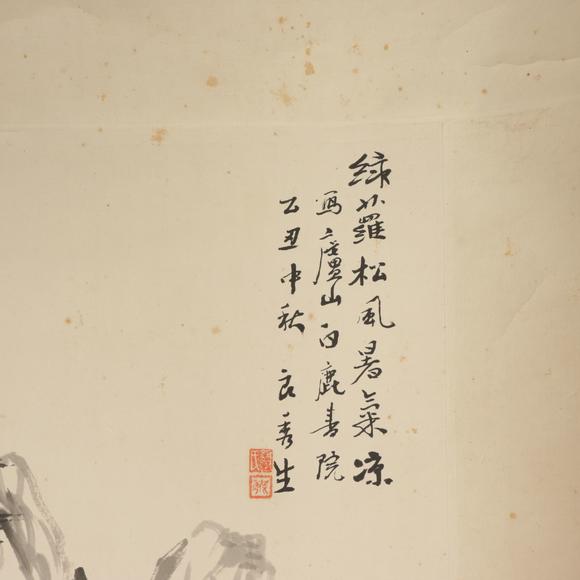 綠蘿松風暑氣凉
寫廬山白鹿書院
乙丑中秋 良秀生